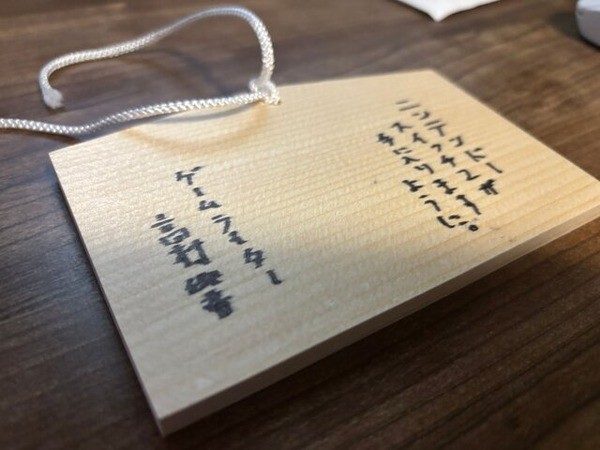 ニンテンドー
スイッチ2が
手に入りますように。
ゲームライター
高村